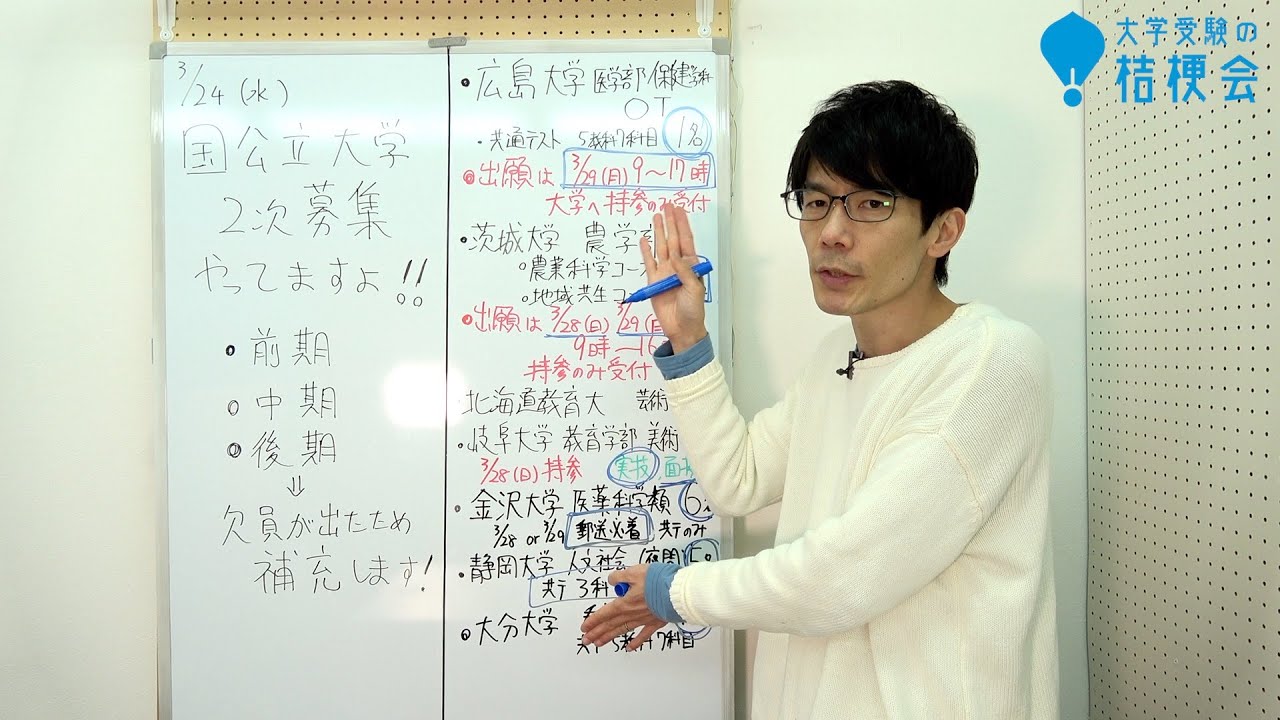 3/24(水)
国公立大学
2次募集
やってますよ!!
・前期
○中期
・後期
⇓
欠員が出たため
補充します!
・広島大学 医学部 保健学科
OT
・共通テスト 5教科7科目 1名
◎出願は 3/29(月) 9〜17時
大学へ持参のみ受付
・茨城大学 農学
○農業科学コー
○地域共生コ
・出願は 3/28(日) 3/29(
9時〜16
持参のみ受付
・北海道教育大 芸術
・岐阜大学 教育学部 美術
3/28(日) 持参 実技, 面接
・金沢大学 医薬科学類 6名
3/28 or 3/29 郵送必着 共テのみ
・静岡大学 人文社会 (夜間)
共テ 3科
・大分大学
共テ 5教科7科目
大学受験の
桔梗会